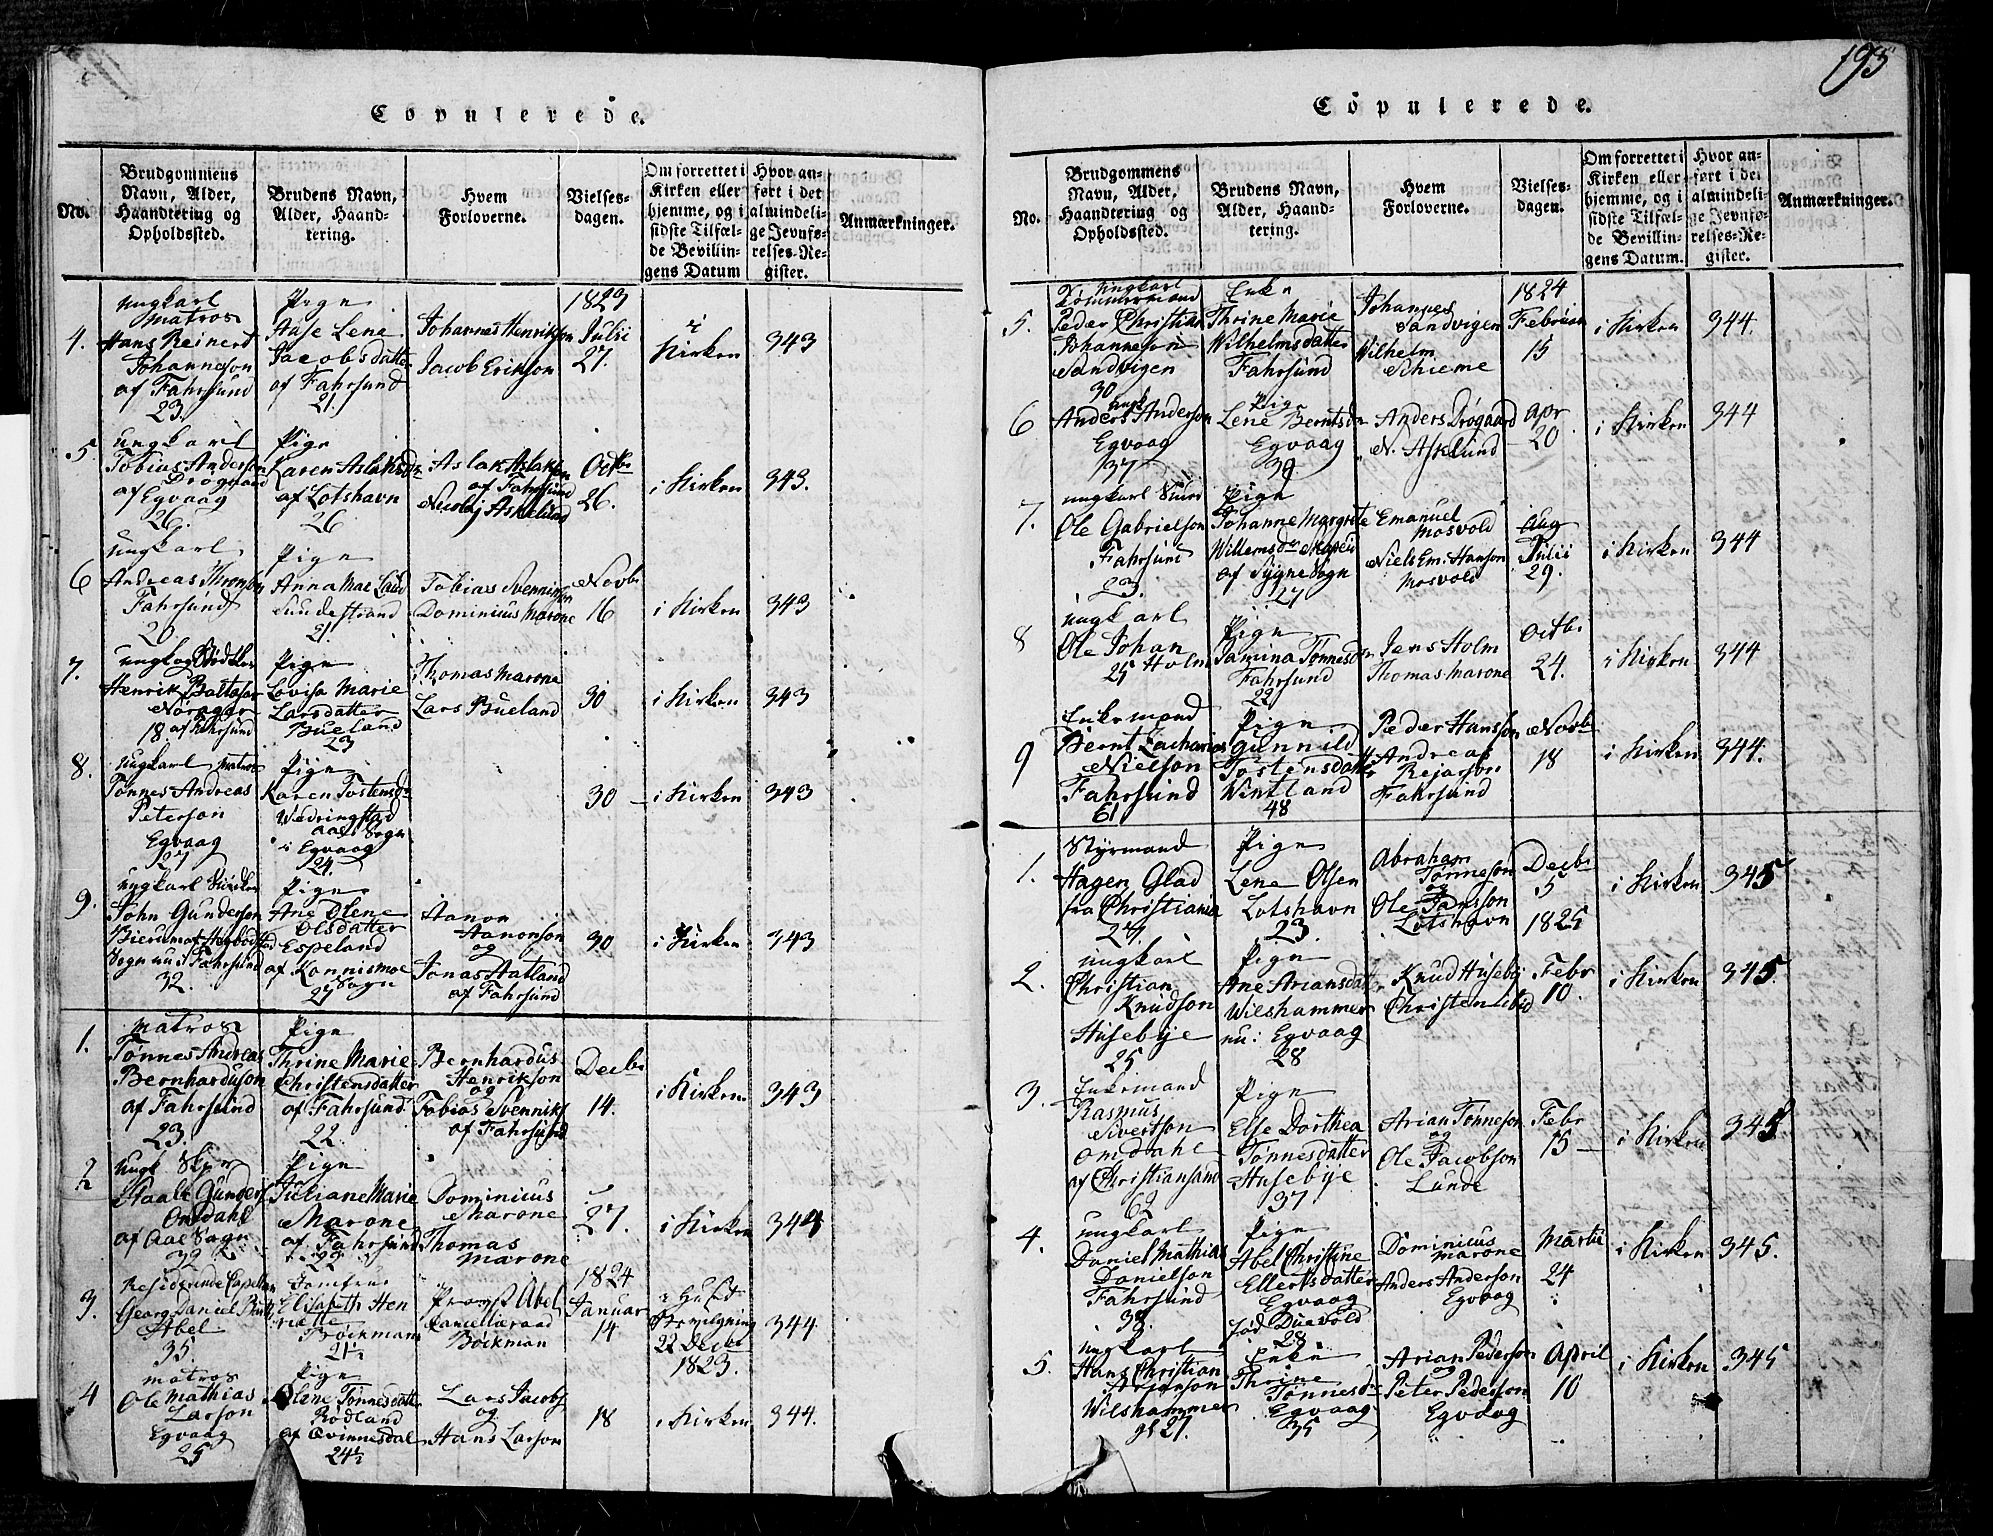 193
Copulerede.
No.
Brudgommens Navn, Alder, Haandtering og Opholdssted.
Brudens Navn, Alder, Haandtering.
Hvem Forloverne.
Vielses-dagen.
Om forrettet i Kirken eller hjemme, og i sidste Tilfælde Bevillingens Datum
Hvor anført i det almindelige Jevnførelses-Register.
Anmærkninger.
4.
ungkarl
Matros
Hans Reinert
Johanneson
af Fahrsund
23.
Pige
Aase Lene
Jacobsdatter
af Fahrsund
21.
Johannes Henrikson
Jacob Erikson
1823
Julii
27.
i
Kirken
343
5
ungkarl
Tobias Anderson
Drøgaard
af Egvaag
26.
Pige
Karen Aslaksdr
af Lotshavn
26
Aslak Aslaksen
af Fahrsund
Nicolaj Askelund
Octbr
26.
i Kirken
343.
6
ungkarl
Andreas Thomsen
Fahrsund
20
Pige
Anna
Lundestrand
21
Tobias Svennikson
Dominicus Marone
Novbr
16
i Kirken
343
7.
Henrik Baltasar
18. af Fahrsund
Pige
Lovisa Marie
Larsdatter
Bueland
23
Thomas Marone
Lars Bueland
30
i Kirken
343
8.
ungkarl Matros
Tønnes Andreas
Peterson
Egvaag
27
Pige
Karen Tostensdr
Aae Sogn
i Egvaag
24.
30
i Kirken
343
9.
ungkarl
John Gunderson
Sogn nu i Fahrsund
32.
Pige
Ane Olene
Olsdatter
Espeland
af Konnismoe
Sogn
27
Aanon
Aanonson
og
Jonas Aatland
af Fahrsund
30
i Kirken
343
1.
Matros
Tønnes Andreas
Bernhardüson
af Fahrsund
23.
Pige
Thrine Marie
Christensdatter
af Fahrsund
22.
Bernhardus
Henrikson
og
Tobias Svenniks
af Fahrsund
Decbr
14.
i Kirken
343
2
Staale Gunders
Omdahl
af Aae Sogn
32
Pige
Juliane Marie
Marone
af Fahrsund
22
Dominicus
Marone
Thomas
Marone
27.
i Kirken
344
3.
Residerende Capelan
Georg Daniel
Abel
35.
Jomfrue
Elisabeth Hen
riette
Brøckmann
21½
Provst Abel
Cancelieraad
Bøckman
1824
Januar
14
i Huset
Bevilgning
22 Decbr
1823.
344
4
Matros
Ole Mathias
Larson
Egvaag
25
Pige
Olene Tønnesdatter
Rødland
af Qvinnesdal
24½
Lars Jacobs
og
Hans Larson
18
i Kirken
344.
Copulerede.
No.
Brudgommens Navn, Alder, Haandtering og Opholdssted.
Brudens Navn, Alder, Haandtering.
Hvem Forloverne.
Vielses-dagen.
Om forrettet i Kirken eller hjemme, og i sidste Tilfælde Bevillingens Datum.
Hvor anført i det almindelige Jevnførelses-Register.
Anmærkninger.
5.
ungkarl
Tømmermand
Peder Christian
Johanneson
Sandvigen
30
Enke
Thrine Marie
Wilhelmsdatter
Fahrsund
Johannes
Sandvigen
Wilhelm
Schieme
1824
Februar
15
i Kirken
344.
6
ungk
Anders Anderson
Egvaag
37
Pige
Lene Berntsdr
Egvaag
39.
Anders Drøgaard
N. Askelund
Apr
20
i Kirken
344
7.
ungkarl
Ole Gabrielson
Fahrsund
23.
Pige
Johanne Margrete
Willemsdr
af Sygne Sogn
27
Emanuel
Mosvold
Niels Em. Hanson
Mosvold
Aug
Julii
29.
i Kirken
344
8
ungkarl
Ole Johan
25 Holm
Pige
Jamina Tønnesdr
Fahrsund
22
Jens Holm
Thomas Marone
Octbr
24.
i Kirken
344
9
Enkemand
Bernt Zacharias
Nielson
Fahrsund
61
Pige
Gunnild
Tostensdatter
Wintland
48
Peder Hansson
Andreas
Rejarson
Fahrsund
Novbr
18
i Kirken
344.
1.
Styrmand
Hagen Glad
fra Christiania
27.
Pige
Lene Olsen
Lotshavn
23.
Abraham
Tønneson
og
Ole Jansson
Lotshavn
Decbr
5
1825
i Kirken
345
2.
ungkarl
Christian
Knudson
Husebye
25
Pige
Ane Ariansdatter
Wilshammer
nu: Egvaag
28
Knud Huseby
Christen
Febr
10.
i Kirken
345.
3.
Enkemand
Rasmus
Sivertson
Omdahl
af Christiansand
62
Pige
Else Dorthea
Tønnesdatter
Husebye
37.
Arian Tønneson
og
Ole Jacobson
Lunde
Febr
15
i Kirken
345
4.
ungkarl
Daniel Mathias
Danielson
Fahrsund
38.
Pige
Abel Christine
Ellertsdatter
Egvaag
fød Duavold
28.
Dominicus
Marone
Anders Anderson
Egvaag
Martii
24
i Kirken
345.
5.
ungkarl
Hans Christian
Arianson
Wilshammer
gl 27.
Enke
Thrine
Tønnesdr
Egvaag
35
Arian Pederson
og
Peter Pederson
Egvaag
April
10
i Kirken
345